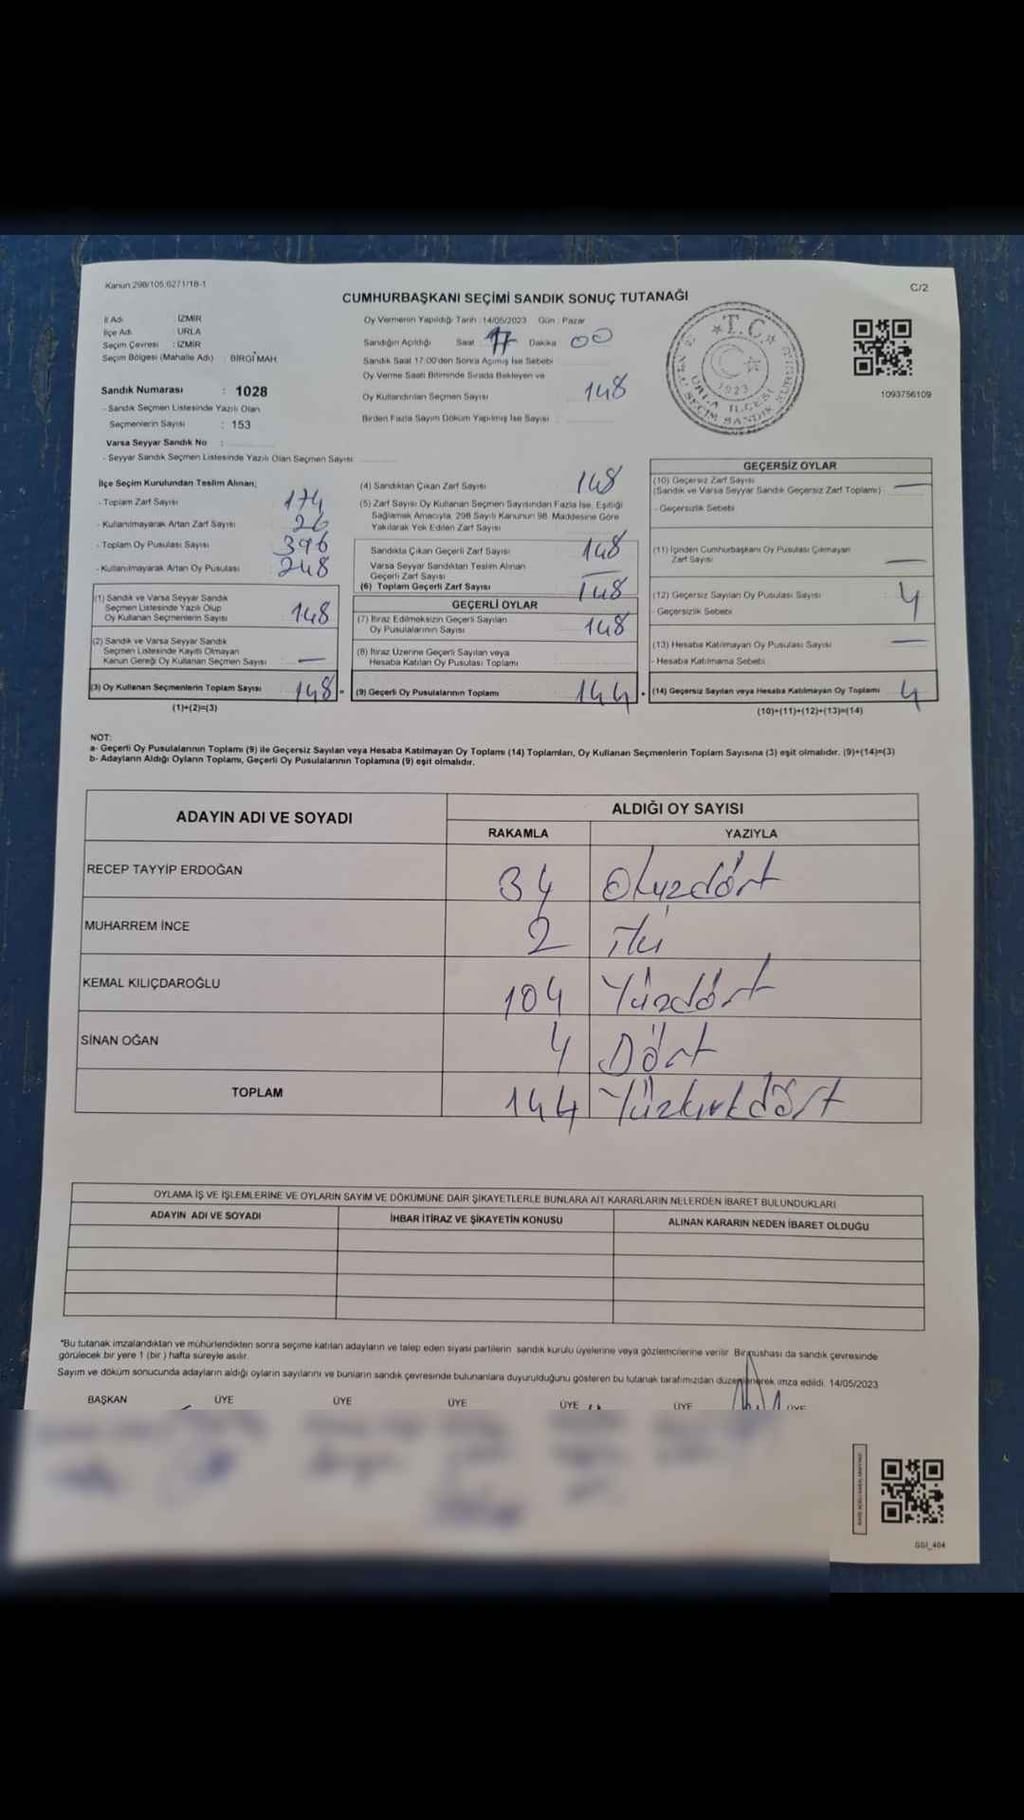 Kanun 298/105;6271/18-1
C/2
CUMHURBAŞKANI SEÇİMİ SANDIK SONUÇ TUTANAĞI
İl Adı : İZMİR
İlçe Adı : URLA
Seçim Çevresi : İZMİR
Seçim Bölgesi (Mahalle Adı) : BİRGİ MAH.
Sandık Numarası : 1028
- Sandık Seçmen Listesinde Yazılı Olan
Seçmenlerin Sayısı : 153
Varsa Seyyar Sandık No :
- Seyyar Sandık Seçmen Listesinde Yazılı Olan Seçmen Sayısı
Oy Vermenin Yapıldığı Tarih : 14/05/2023 Gün : Pazar
Sandığın Açıldığı Saat 17 Dakika 00
Sandık Saat 17:00'den Sonra Açılmış İse Sebebi
Oy Verme Saati Bitiminde Sırada Bekleyen ve
Oy Kullandırılan Seçmen Sayısı 148
Birden Fazla Sayım Döküm Yapılmış İse Sayısı
T.C.
URLA İLÇESİ
1923
1093756109
İlçe Seçim Kurulundan Teslim Alınan;
- Toplam Zarf Sayısı 174
- Kullanılmayarak Artan Zarf Sayısı 26
- Toplam Oy Pusulası Sayısı 396
- Kullanılmayarak Artan Oy Pusulası 248
(1) Sandık ve Varsa Seyyar Sandık
Seçmen Listesinde Yazılı Olup
Oy Kullanan Seçmenlerin Sayısı 148
(2) Sandık ve Varsa Seyyar Sandık
Seçmen Listesinde Kayıtlı Olmayan
Kanun Gereği Oy Kullanan Seçmen Sayısı —
(3) Oy Kullanan Seçmenlerin Toplam Sayısı 148
(1)+(2)=(3)
(4) Sandıktan Çıkan Zarf Sayısı 148
(5) Zarf Sayısı Oy Kullanan Seçmen Sayısından Fazla İse, Eşitliği
Sağlamak Amacıyla, 298 Sayılı Kanunun 98. Maddesine Göre
Yakılarak Yok Edilen Zarf Sayısı
Sandıkta Çıkan Geçerli Zarf Sayısı 148
Varsa Seyyar Sandıktan Teslim Alınan
Geçerli Zarf Sayısı —
(6) Toplam Geçerli Zarf Sayısı 148
GEÇERLİ OYLAR
(7) İtiraz Edilmeksizin Geçerli Sayılan
Oy Pusulalarının Sayısı 148
(8) İtiraz Üzerine Geçerli Sayılan veya
Hesaba Katılan Oy Pusulası Toplamı
(9) Geçerli Oy Pusulalarının Toplamı 144
GEÇERSİZ OYLAR
(10) Geçersiz Zarf Sayısı —
(Sandık ve Varsa Seyyar Sandık Geçersiz Zarf Toplamı)
- Geçersizlik Sebebi
(11) İçinden Cumhurbaşkanı Oy Pusulası Çıkmayan
Zarf Sayısı —
(12) Geçersiz Sayılan Oy Pusulası Sayısı 4
- Geçersizlik Sebebi
(13) Hesaba Katılmayan Oy Pusulası Sayısı —
- Hesaba Katılmama Sebebi
(14) Geçersiz Sayılan veya Hesaba Katılmayan Oy Toplamı 4
(10)+(11)+(12)+(13)=(14)
NOT:
a- Geçerli Oy Pusulalarının Toplamı (9) ile Geçersiz Sayılan veya Hesaba Katılmayan Oy Toplamı (14) Toplamları, Oy Kullanan Seçmenlerin Toplam Sayısına (3) eşit olmalıdır. (9)+(14)=(3)
b- Adayların Aldığı Oyların Toplamı, Geçerli Oy Pusulalarının Toplamına (9) eşit olmalıdır.
ADAYIN ADI VE SOYADI
ALDIĞI OY SAYISI
RAKAMLA YAZIYLA
RECEP TAYYİP ERDOĞAN 34 Otuzdört
MUHARREM İNCE 2 iki
KEMAL KILIÇDAROĞLU 104 Yüzdört
SİNAN OĞAN 4 Dört
TOPLAM 144 Yüzkırkdört
OYLAMA İŞ VE İŞLEMLERİNE VE OYLARIN SAYIM VE DÖKÜMÜNE DAİR ŞİKAYETLERLE BUNLARA AİT KARARLARIN NELERDEN İBARET BULUNDUKLARI
ADAYIN ADI VE SOYADI İHBAR İTİRAZ VE ŞİKAYETİN KONUSU ALINAN KARARIN NEDEN İBARET OLDUĞU
*Bu tutanak imzalandıktan ve mühürlendikten sonra seçime katılan adayların ve talep eden siyasi partilerin sandık kurulu üyelerine veya gözlemcilerine verilir. Bir nüshası da sandık çevresinde
görülecek bir yere 1 (bir) hafta süreyle asılır.
Sayım ve döküm sonucunda adayların aldığı oyların sayılarını ve bunların sandık çevresinde bulunanlara duyurulduğunu gösteren bu tutanak tarafımızdan düzenlenerek imza edildi. 14/05/2023
BAŞKAN ÜYE ÜYE ÜYE ÜYE ÜYE ÜYE
GGI_404